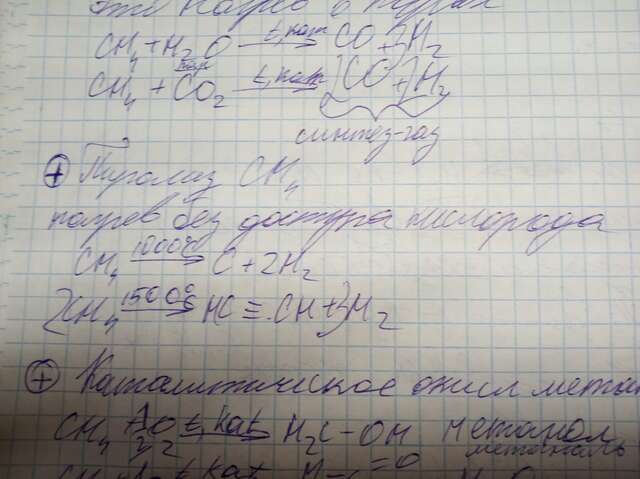 это нагрев в
CH₄ + H₂O t, кат → CO + 3H₂
пар
CH₄ + CO₂ t, кат → 2CO + 2H₂
синтез-газ
⊕ Пиролиз CH₄
нагрев без доступа кислорода
CH₄ 1000°C → C + 2H₂
2CH₄ 1500°C → HC ≡ CH + 3H₂
⊕ Каталитическое окисл метан
CH₄ + O₂ t, kat → H₃C – OH метанол
метаналь
kat =O